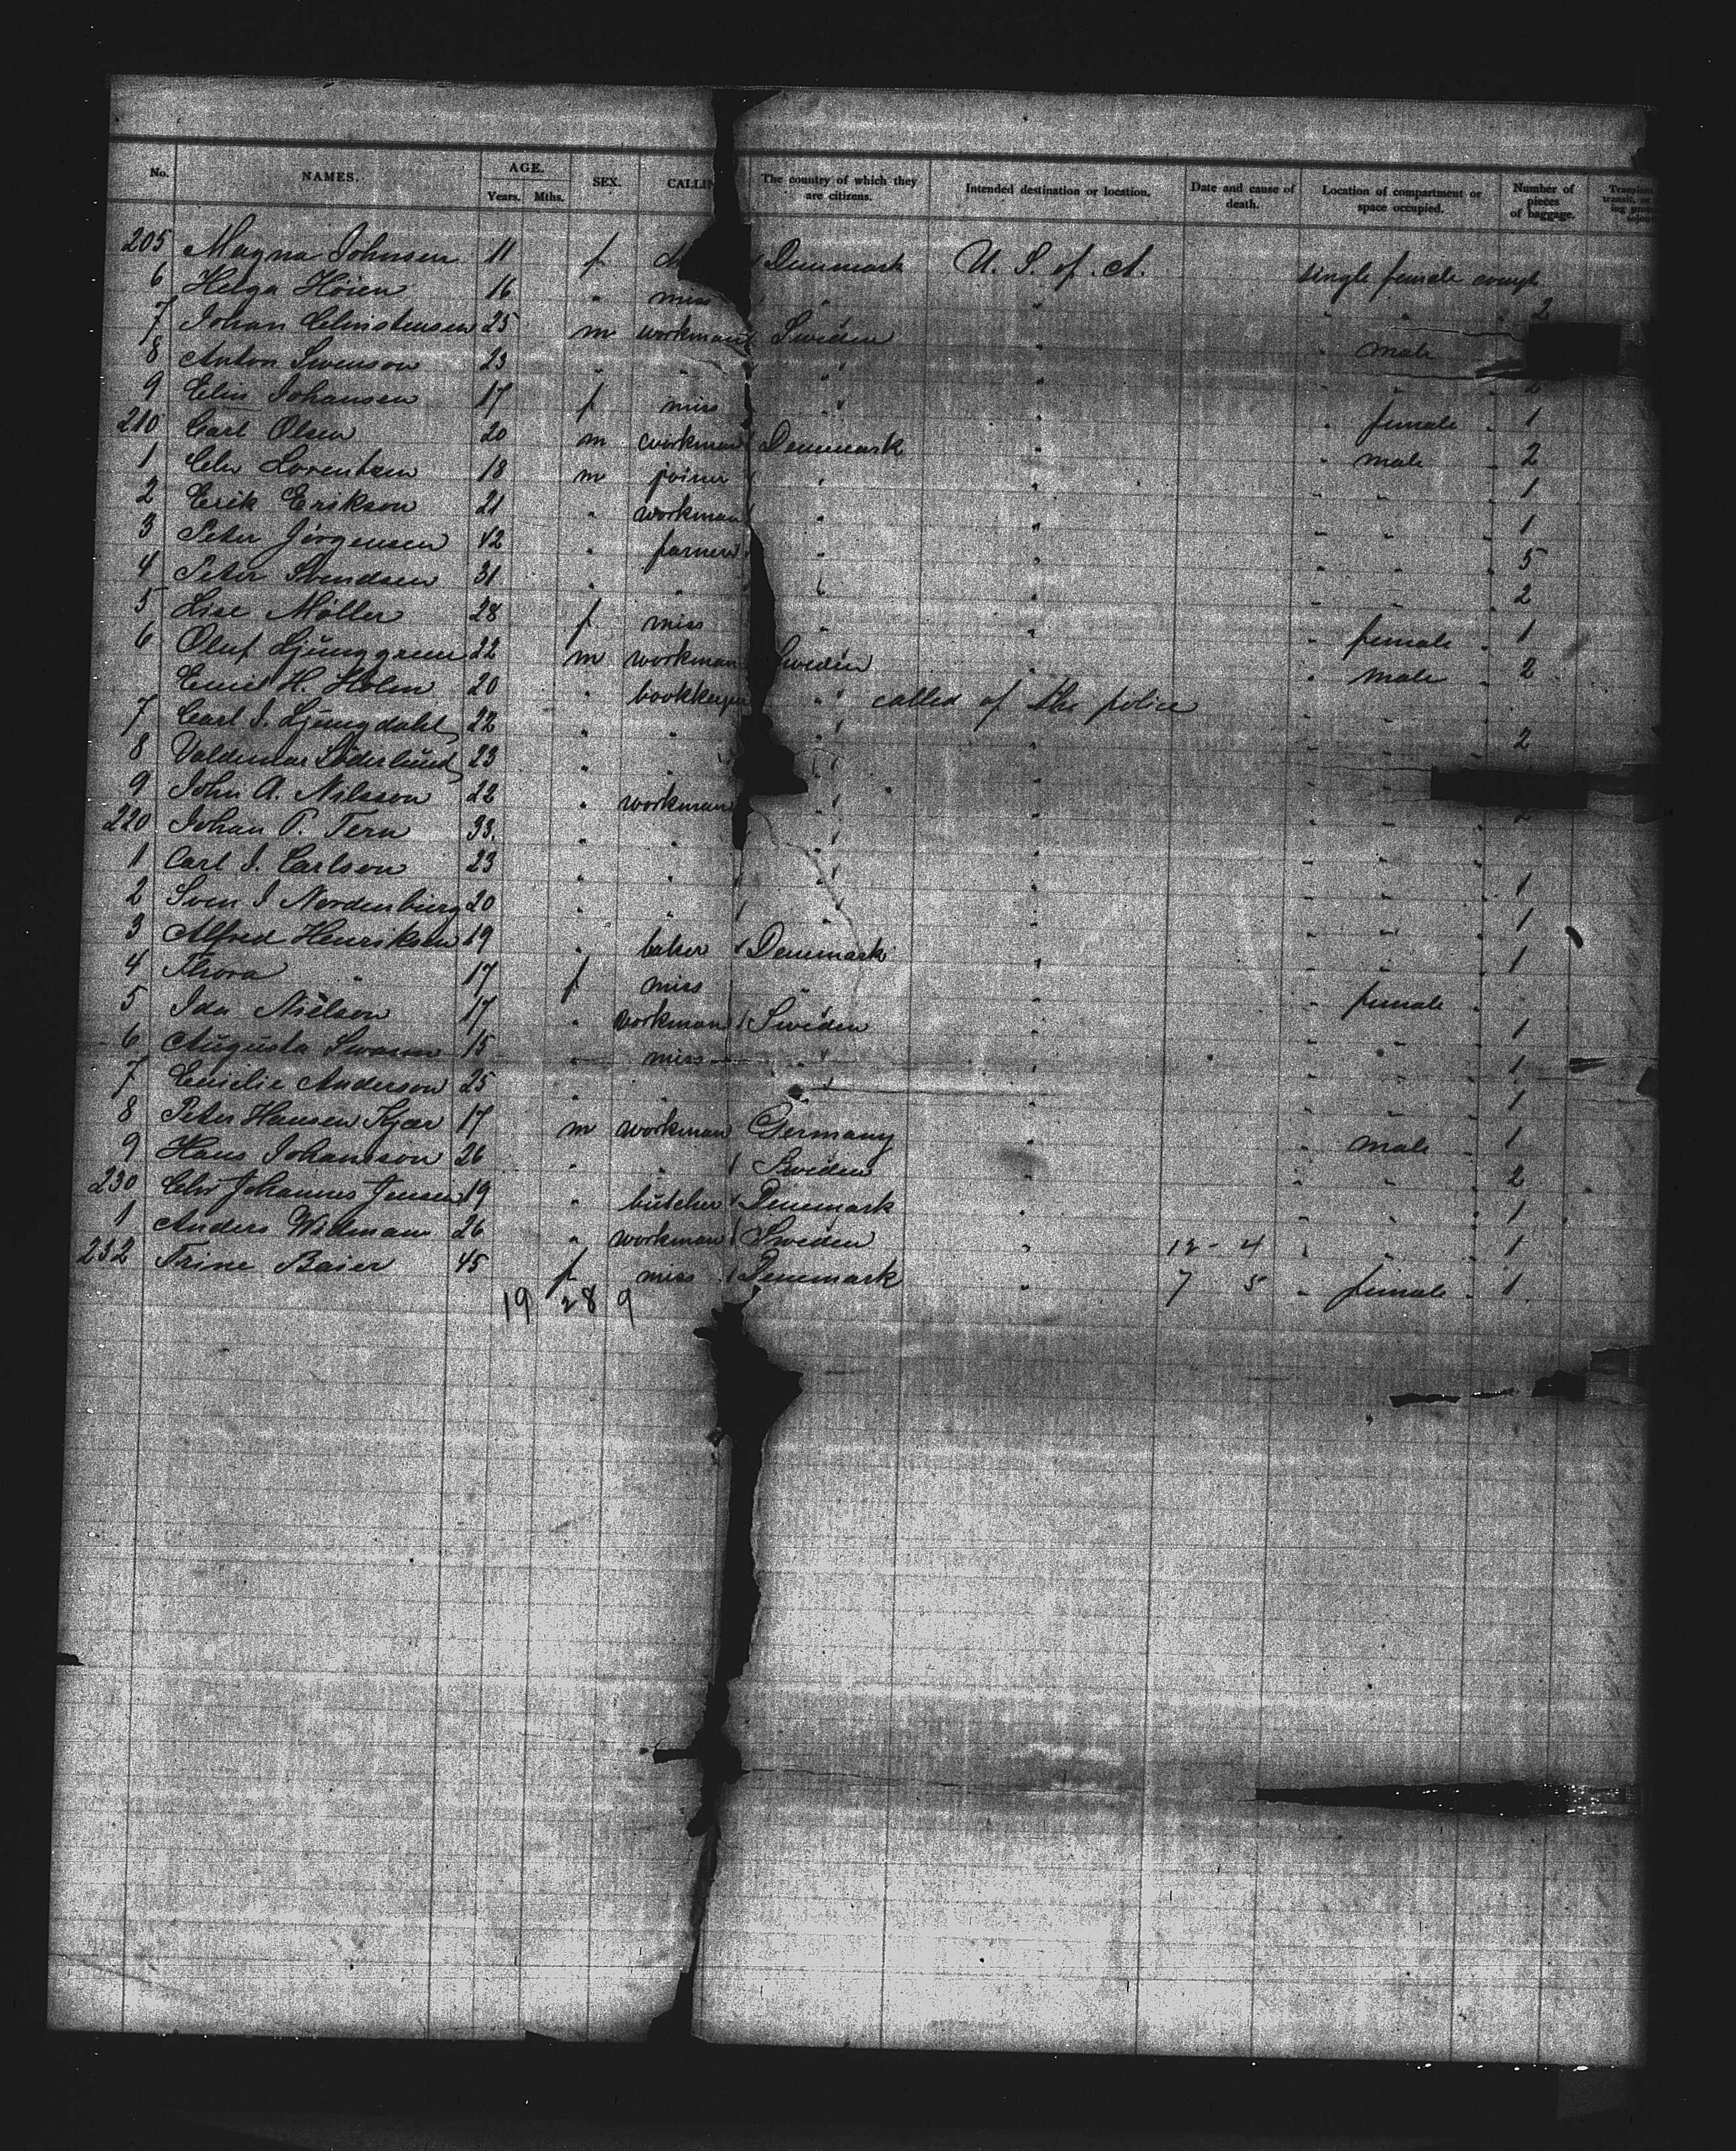 No. NAMES. AGE. Years. Mths. SEX. CALLIN The country of which they are citizens. Intended destination or location. Date and cause of death. Location of compartment or space occupied. Number of pieces of baggage.
205 Magna Johnsen 11 f Denmark U. S. of A. single female compt
6 Helga Höien 16 " miss " " " " 2
7 Johan Christensen 25 m workman Sweden " " male
8 Anton Swenson 23 " " " " " " 2
9 Elin Johansen 17 f miss " " " female " 1
210 Carl Olsen 20 m workman Denmark " " male " 2
1 Chr Lorentsen 18 m joiner " " " " " 1
2 Erik Erikson 21 " workman " " " " " 1
3 Peter Jörgensen 42 " farmer " " " " " 5
4 Peter Svendsen 31 " " " " " " " 2
5 Lise Möller 28 f miss " " " female " 1
6 Oluf Ljunggren 22 m workman Sweden " " male " 2
Emil H. Holm 20 " bookkeeper " called of the police
7 Carl J. Ljungdahl 22 " " " " " " " 2
8 Valdemar Söderlund 23 " " " " " "
9 John A. Nilsson 22 " workman " " " " " 2
220 Johan P. Tern 33 " " " " " " "
1 Carl J. Carlson 23 " " " " " " " 1
2 Sven J Nordenburg 20 " " " " " " " 1
3 Alfred Henriksen 19 " baker Denmark " " " " 1
4 Thora " 17 f miss " " " female "
5 Ida Nielson 17 " workman Sweden " " " " 1
6 Augusta 15 " miss " " " " " 1
7 Emilie Anderson 25 " " " " " " " 1
8 Peter Hansen Kjær 17 m workman Germany " " male " 1
9 Hans Johansson 26 " " Sweden " " " " 2
230 Chr Johannes Jensen 19 " butcher Denmark " " " " 1
1 Anders Widman 26 " workman Sweden " 12 - 4 " " " 1
232 Trine Baier 45 f miss Denmark " 7 5 " female " 1
19 28 9